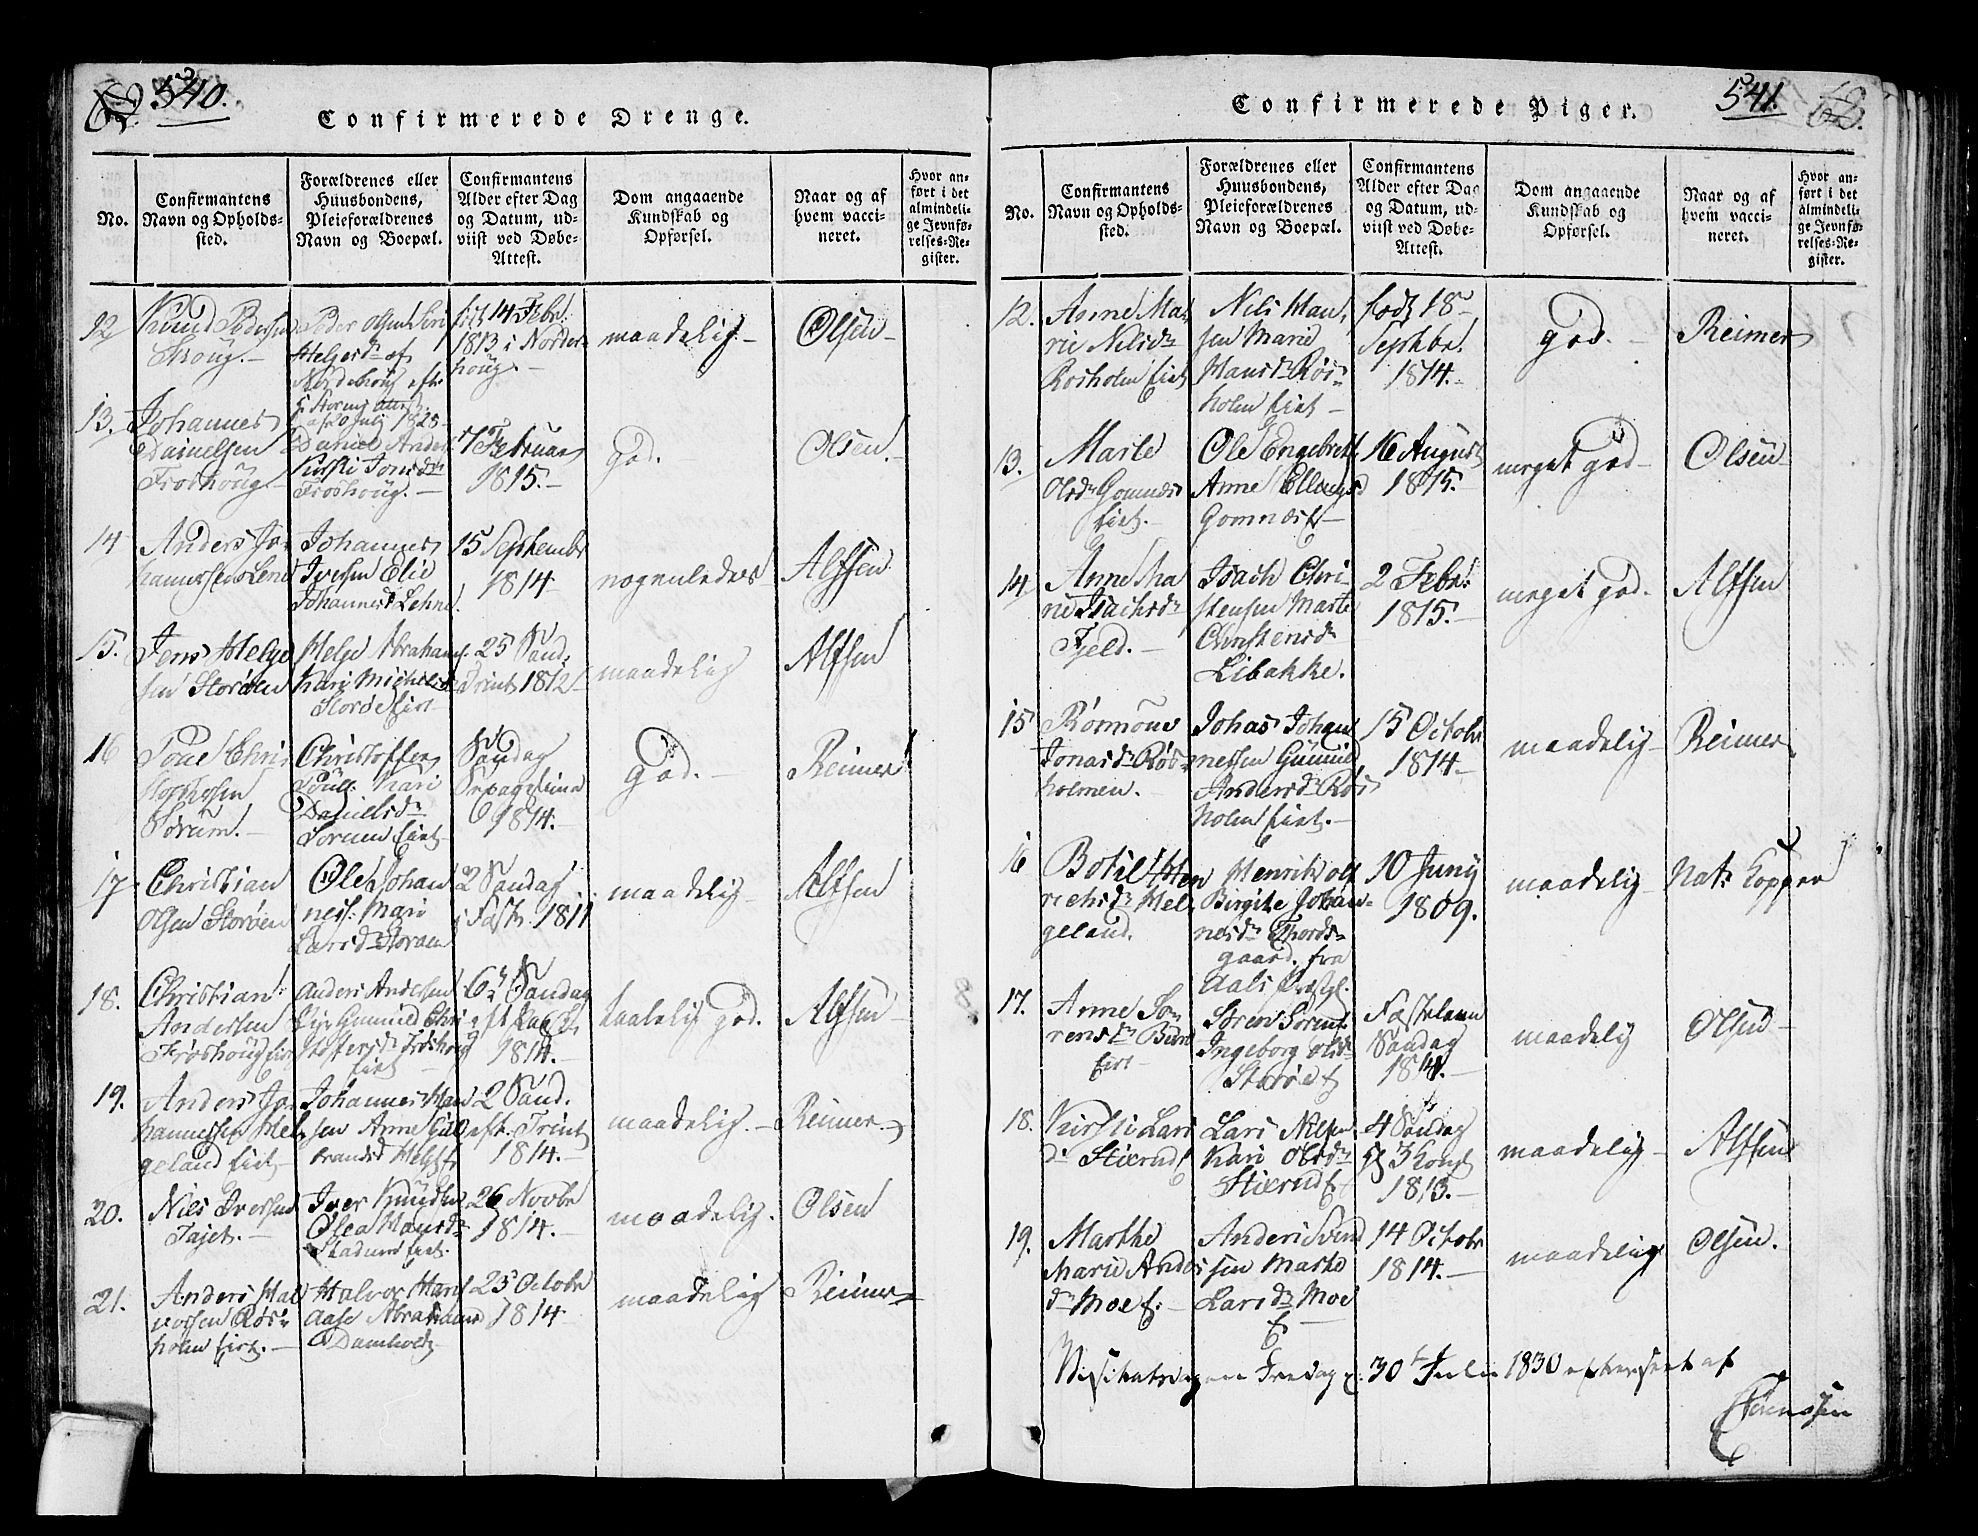 540.
Confirmerede Drenge.
No.
Confirmantens
Navn og Opholds-
sted.
Forældrenes eller
Huusbondens,
Pleieforældrenes
Navn og Boepæl.
Confirmantens
Alder efter Dag
og Datum, ud-
viist ved Døbe-
Attest.
Dom angaaende
Kundskab og
Opførsel.
Naar og af
hvem vacci-
neret.
Hvor an-
ført i det
almindeli-
ge Jevnfø-
relses-Re-
gister.
12
Knud Pedersen
Skoug.-
Peder Olsen Siri
Helgesdr af
Norderhoug eft.
født 14 Febr:
1813 i Norder-
houg.-
maadelig.-
Olsen-
13.
Johannes
Danielsen
Froshoug.-
Daniel Anders
Kirsti Jonsdr
Froshoug.-
7 Februar
1815.-
god.-
Olsen.-
14
Anders Jo-
hannessen Lene
Johannes
Iversen Elie
Johannesd Lehne.
15 Septembr
1814-
nogenledes
Alfsen
15.
Jens Helge
sen Storøen
Helge Abrahams.
Kari Michelsd
Storøe Eiet
25 Sønd.
Trint 1812-
maadelig
Alfsen
16
Poul Chri
stophersen
Sørum.-
Christoffer
Poull: Kari
Danielsdr
Sorum Eiet
Søndag
Septuagesima
1814.-
god.-
Reimer
17
Christian
Olsen Storøen
Ole Johan
ness. Mari
Larsdr Storøen
2 Søndag
i Faste. 1811
maadelig-
Alfsen
18.
Christian
Andersen
Froshoug Eiet
Anders Andersen
Gunnild Chri
stofersdr Froshoug
Eiet
6te Søndag
1814.-
taalelig god.
Alfsen-
19.
Anders Jo-
hannessen Hel-
geland Eiet-
Johannes Han
sen Anne Gul
brandsd Helglf
2 Sønd.
eft. Trint
1814.-
maadelig.-
Reimer-
20.
Nils Iversen
Fajet.-
Iver Knudsen
Olea Hansdr
Stadum Eiet.
26 Novbr
1814.-
maadelig.
Olsen
21.
Anders Hal
vorsen Røs-
holm Eiet.-
Halvor Hans
Aase Abrahamsd
Damholt
23 Octobr
1814-
maadelig
Reimer-
541.
Confirmerede Piger.
No.
Confirmantens
Navn og Opholds-
sted.
Forældrenes eller
Huusbondens,
Pleieforældrenes
Navn og Boepæl.
Confirmantens
Alder efter Dag
og Datum, ud-
viist ved Døbe-
Attest.
Dom angaaende
Kundskab og
Opførsel.
Naar og af
hvem vacci-
neret.
Hvor an-
ført i det
almindeli-
ge Jevnfø-
relses-Re-
gister.
12.
Anne Ma-
rie Nilsdr
Rosholm Eiet
Nils Han-
sen Marie
Hansdr Røs-
holm Eiet-
født 18
Septbr.
1814.-
god.-
Reimer
13.
Marte
Olsdr Gomnæs
Eiet.-
Ole Engebret.
Anne Ellingsd
Gomnæs E-
16 August
1815.-
meget god-
Olsen-
14.
Anne Ma
rie Isachsdr
Fjeld.-
Isach Chri-
stensen Marte
Christensdr
Libakke.
2 Febr.
1815.-
meget god.
Alfsen
15
Rønnoue
Jonasdr Røs-
holmen.
Johas Johan
nessen Gunnild
Andersdr Røs
holm Eiet.-
15 Octobr
1814-
maadelig-
Reimer
16
Botil Hen
richsdr Hel-
geland.
Henrik Oll
Birgite Johan-
nesdr Thords-
gaard. fra
Aals Præstgl.
10 Juny
1809.
maadelig-
Nat: Kopper
17.
Anne Sø-
rensdr Bure
Eiet-
Søren Sørens.
Ingeborg Olsdr
Storøe E
Fastelavn
Søndag
1814.-
maadelig
Olsen-
18.
Kirsti Lars
dr Stierud E
Lars Nilsen
Kari Olsdr
Stierud E
4 Søndag
3 Kong
1813.-
maadelig-
Alfsen
19.
Marthe
Marie Anders
dr Moe E.-
Anders Svend
sen Marte
Larsdr Moe
E-
14 Octobr
1814.-
maadelig
Olsen.
Visitatsdagen Fredag d. 30te Juli 1830 efterseet af
Sørenssen